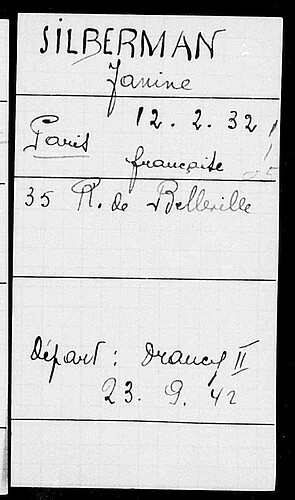 SILBERMAN
Janine
12. 2. 32
Paris
française
35 R. de Belleville
Départ: Drancy II
23. 9. 42